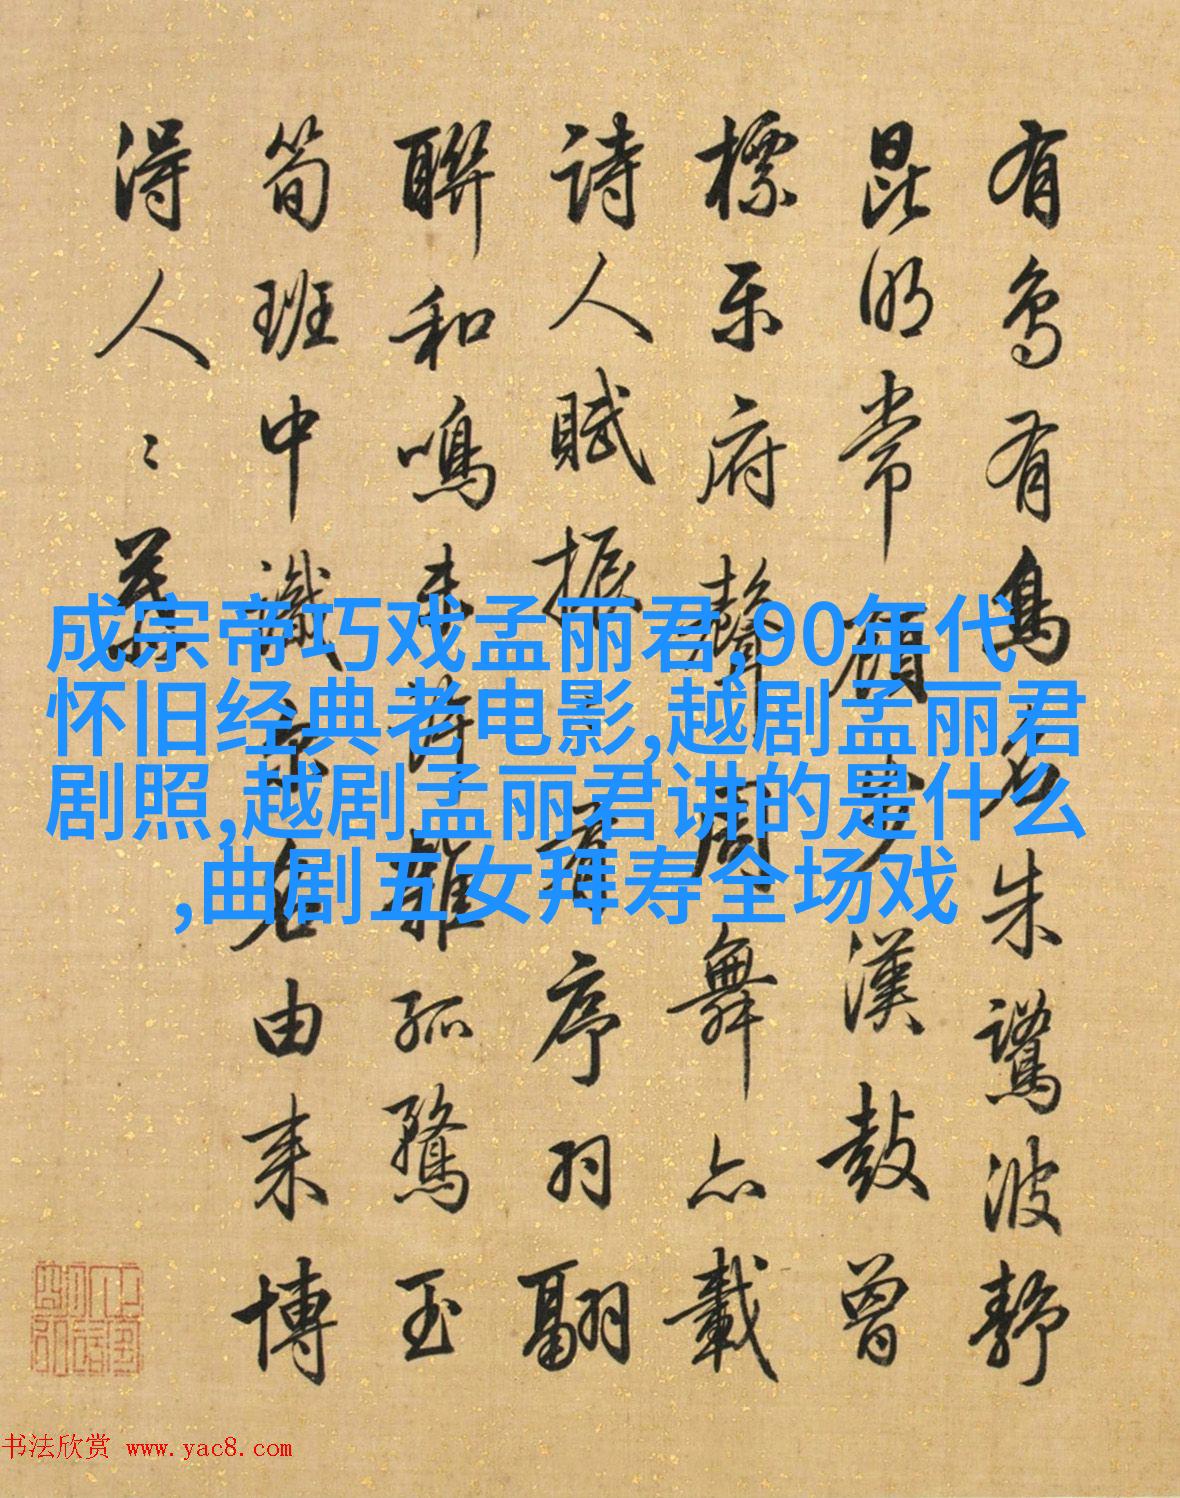 有鳥有鳥名朱鷺波靜
昆明常顧步漢鼓曾
標樂府聲周舞亦載
詩人賦振有序羽翮
聯和鳴未許離孤鶩玉
筍班中識名由来博
得人〻
成宗帝巧戏孟丽君,90年代
怀旧经典老电影,越剧孟丽君
剧照,越剧孟丽君讲的是什么
,曲剧五女拜寿全场戏
书法欣赏 www.yac8.com